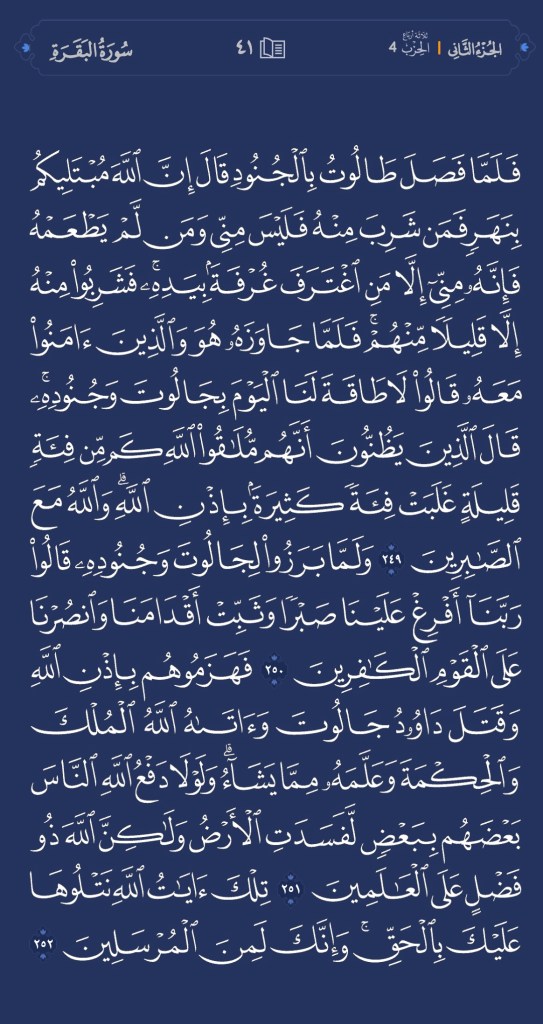 الجُزْءُ الثَّانِي | ثلاثة أرباع الحِزْب 4
٤١
سُورَةُ البَقَرَةِ
فَلَمَّا فَصَلَ طَالُوتُ بِٱلۡجُنُودِ قَالَ إِنَّ ٱللَّهَ مُبۡتَلِيكُم
بِنَهَرٖ فَمَن شَرِبَ مِنۡهُ فَلَيۡسَ مِنِّي وَمَن لَّمۡ يَطۡعَمۡهُ
فَإِنَّهُۥ مِنِّيٓ إِلَّا مَنِ ٱغۡتَرَفَ غُرۡفَةَۢ بِيَدِهِۦۚ فَشَرِبُواْ مِنۡهُ
إِلَّا قَلِيلٗا مِّنۡهُمۡۚ فَلَمَّا جَاوَزَهُۥ هُوَ وَٱلَّذِينَ ءَامَنُواْ
مَعَهُۥ قَالُواْ لَا طَاقَةَ لَنَا ٱلۡيَوۡمَ بِجَالُوتَ وَجُنُودِهِۦۚ
قَالَ ٱلَّذِينَ يَظُنُّونَ أَنَّهُم مُّلَٰقُواْ ٱللَّهِ كَم مِّن فِئَةٖ
قَلِيلَةٍ غَلَبَتۡ فِئَةٗ كَثِيرَةَۢ بِإِذۡنِ ٱللَّهِۗ وَٱللَّهُ مَعَ
ٱلصَّٰبِرِينَ ٢٤٩ وَلَمَّا بَرَزُواْ لِجَالُوتَ وَجُنُودِهِۦ قَالُواْ
رَبَّنَآ أَفۡرِغۡ عَلَيۡنَا صَبۡرٗا وَثَبِّتۡ أَقۡدَامَنَا وَٱنصُرۡنَا
عَلَى ٱلۡقَوۡمِ ٱلۡكَٰفِرِينَ ٢٥٠ فَهَزَمُوهُم بِإِذۡنِ ٱللَّهِ
وَقَتَلَ دَاوُۥدُ جَالُوتَ وَءَاتَىٰهُ ٱللَّهُ ٱلۡمُلۡكَ
وَٱلۡحِكۡمَةَ وَعَلَّمَهُۥ مِمَّا يَشَآءُۗ وَلَوۡلَا دَفۡعُ ٱللَّهِ ٱلنَّاسَ
بَعۡضَهُم بِبَعۡضٖ لَّفَسَدَتِ ٱلۡأَرۡضُ وَلَٰكِنَّ ٱللَّهَ ذُو
فَضۡلٍ عَلَى ٱلۡعَٰلَمِينَ ٢٥١ تِلۡكَ ءَايَٰتُ ٱللَّهِ نَتۡلُوهَا
عَلَيۡكَ بِٱلۡحَقِّۚ وَإِنَّكَ لَمِنَ ٱلۡمُرۡسَلِينَ ٢٥٢